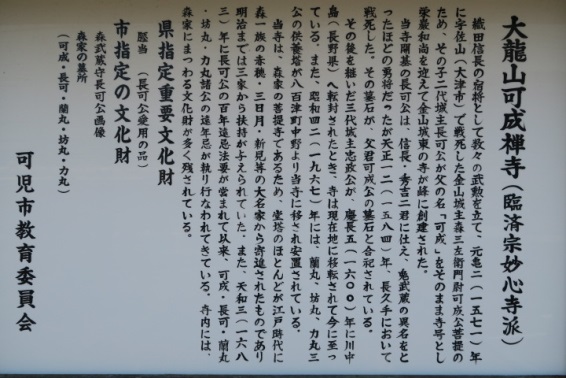 大龍山可成禅寺(臨済宗妙心寺派)
織田信長の宿将として数々の武勲を立て、元亀二(一五七一)年
に宇佐山(大津市)で戦死した金山城主森三左衛門尉可成公菩提の
ため、その子二代城主長可公が父の名「可成」をそのまま寺号とし
栄巌和尚を迎えて金山城東の寺が峰に創建された。
当寺開基の長可公は、信長・秀吉二君に仕え、鬼武蔵の異名をと
ったほどの勇将だったが天正一二(一五八四)年、長久手において
戦死した。その墓石が、父君可成公の墓石と合祀されている。
その後を継いだ三代城主忠政公が、慶長五(一六〇〇)年に川中
島(長野県)へ転封されたとき、寺は現在地に移転されて今に至っ
ている。また、昭和四二(一九六七)年には、蘭丸、坊丸、力丸三
公の供養塔が八百津町中野より当寺に移され安置されている。
当寺は、森家の菩提寺であるため、堂塔のほとんどが江戸時代に
森一族の赤穂・三日月・新見等の大名家から寄進されたものであり
明治までは三家から扶持が与えられていた。また、天和三(一六八
三)年に長可公の百年遠忌法要が営まれて以来、可成・長可・蘭丸
・坊丸・力丸諸公の遠年忌が執り行なわれてきている。寺内には、
森家にまつわる文化財が多く残されている。
県指定重要文化財
鞍 (長可公愛用の品)
市指定の文化財
森武蔵守長可公画像
森家の墓所
(可成・長可・蘭丸・坊丸・力丸)
可児市教育委員会